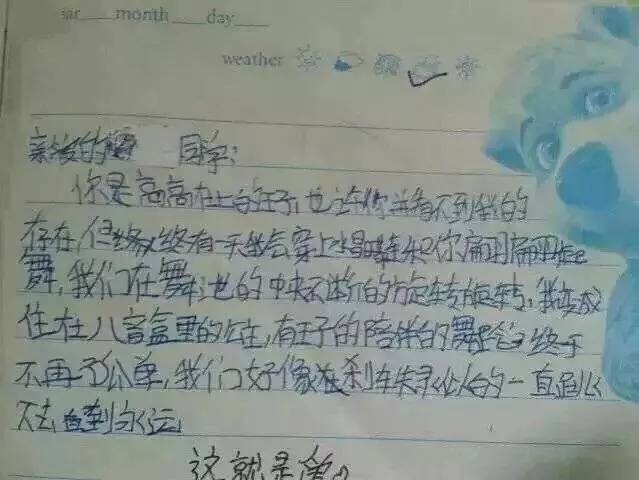 ear month day
weather
亲爱的 同学:
你是高高在上的王子,也许你并看不到我的
存在,但终有一天我会穿上水晶鞋和你翩翩起
舞,我们在舞池的中央不断的旋转旋转,我变成
住在八音盒里的公主,有王子的陪伴的舞蹈终于
不再孤单,我们好像刹车失灵似的一直跳
下去,直到永远
这就是爱。